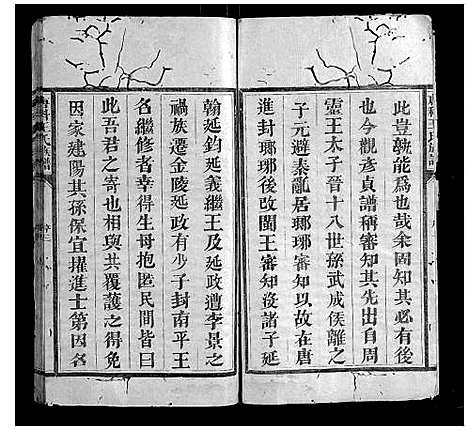 此豈孰能爲也哉余固知其必有後
也今觀彥貞譜稱審知其先出自周
靈王太子晉十八世孫武成侯離之
子元避秦亂居瑯瑘審知以故在唐
進封瑯瑘後改閩王審知沒諸子延
翰延鈞延羲繼王及延政遭李景之
禍族遷金陵延政有少子封南平王
名繼修者幸得生母抱匿民間皆曰
此吾君之寄也相與共覆護之得免
因家建陽其孫保宜擢進士第因名
王氏族譜